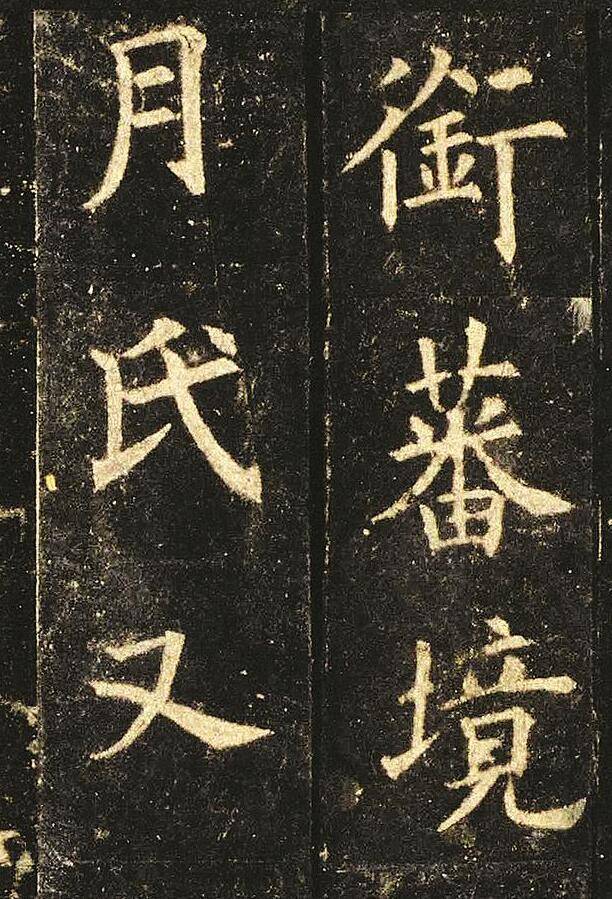 銜蕃境
月氏又